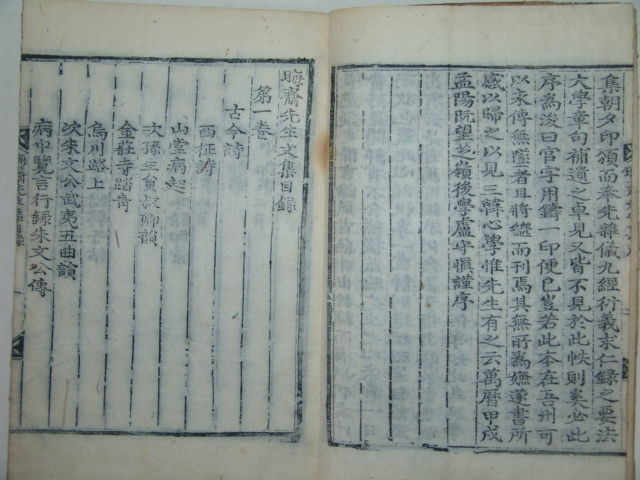 集朝夕印頒而奉先雜儀九經衍義求仁錄之要法
大學章句補遺之卓見又皆不見於此帙則奚必此
序爲浚曰官字用鑄一印便已豈若此本在吾州可
以永傳無墜者耳將繼而刊焉其無所爲嫌遂書所
感以歸之以見三韓心學惟先生有之云萬曆甲戌
孟陽旣望並嶺後學盧守愼謹序
晦齋先生文集目錄
第一卷
古今詩
西征詩
山堂病起
次孫生貟叔卿韻
金莊寺踏靑
烏川路上
次朱文公武夷五曲韻
病中覽言行錄朱文公傳